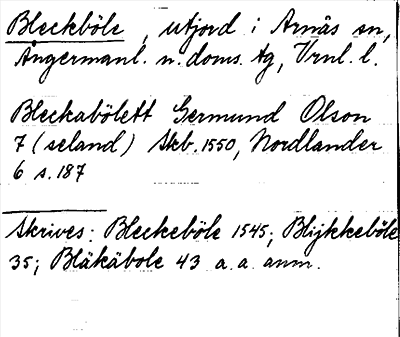 Bleckböle, utjord i Arnäs sn,
Ångermanl. n. doms. tg, Vrnl. l.
Bleckabölett Germund Olson
7 (seland) Skb. 1550, Nordlander
6 s. 187
Skrives: Bleckeböle 1545; Blijkkeböle
35; Bläkäbole 43 a. a. anm.